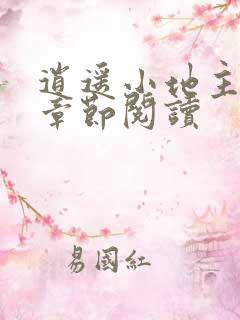 逍遥小地主
章節閱讀
易國紅